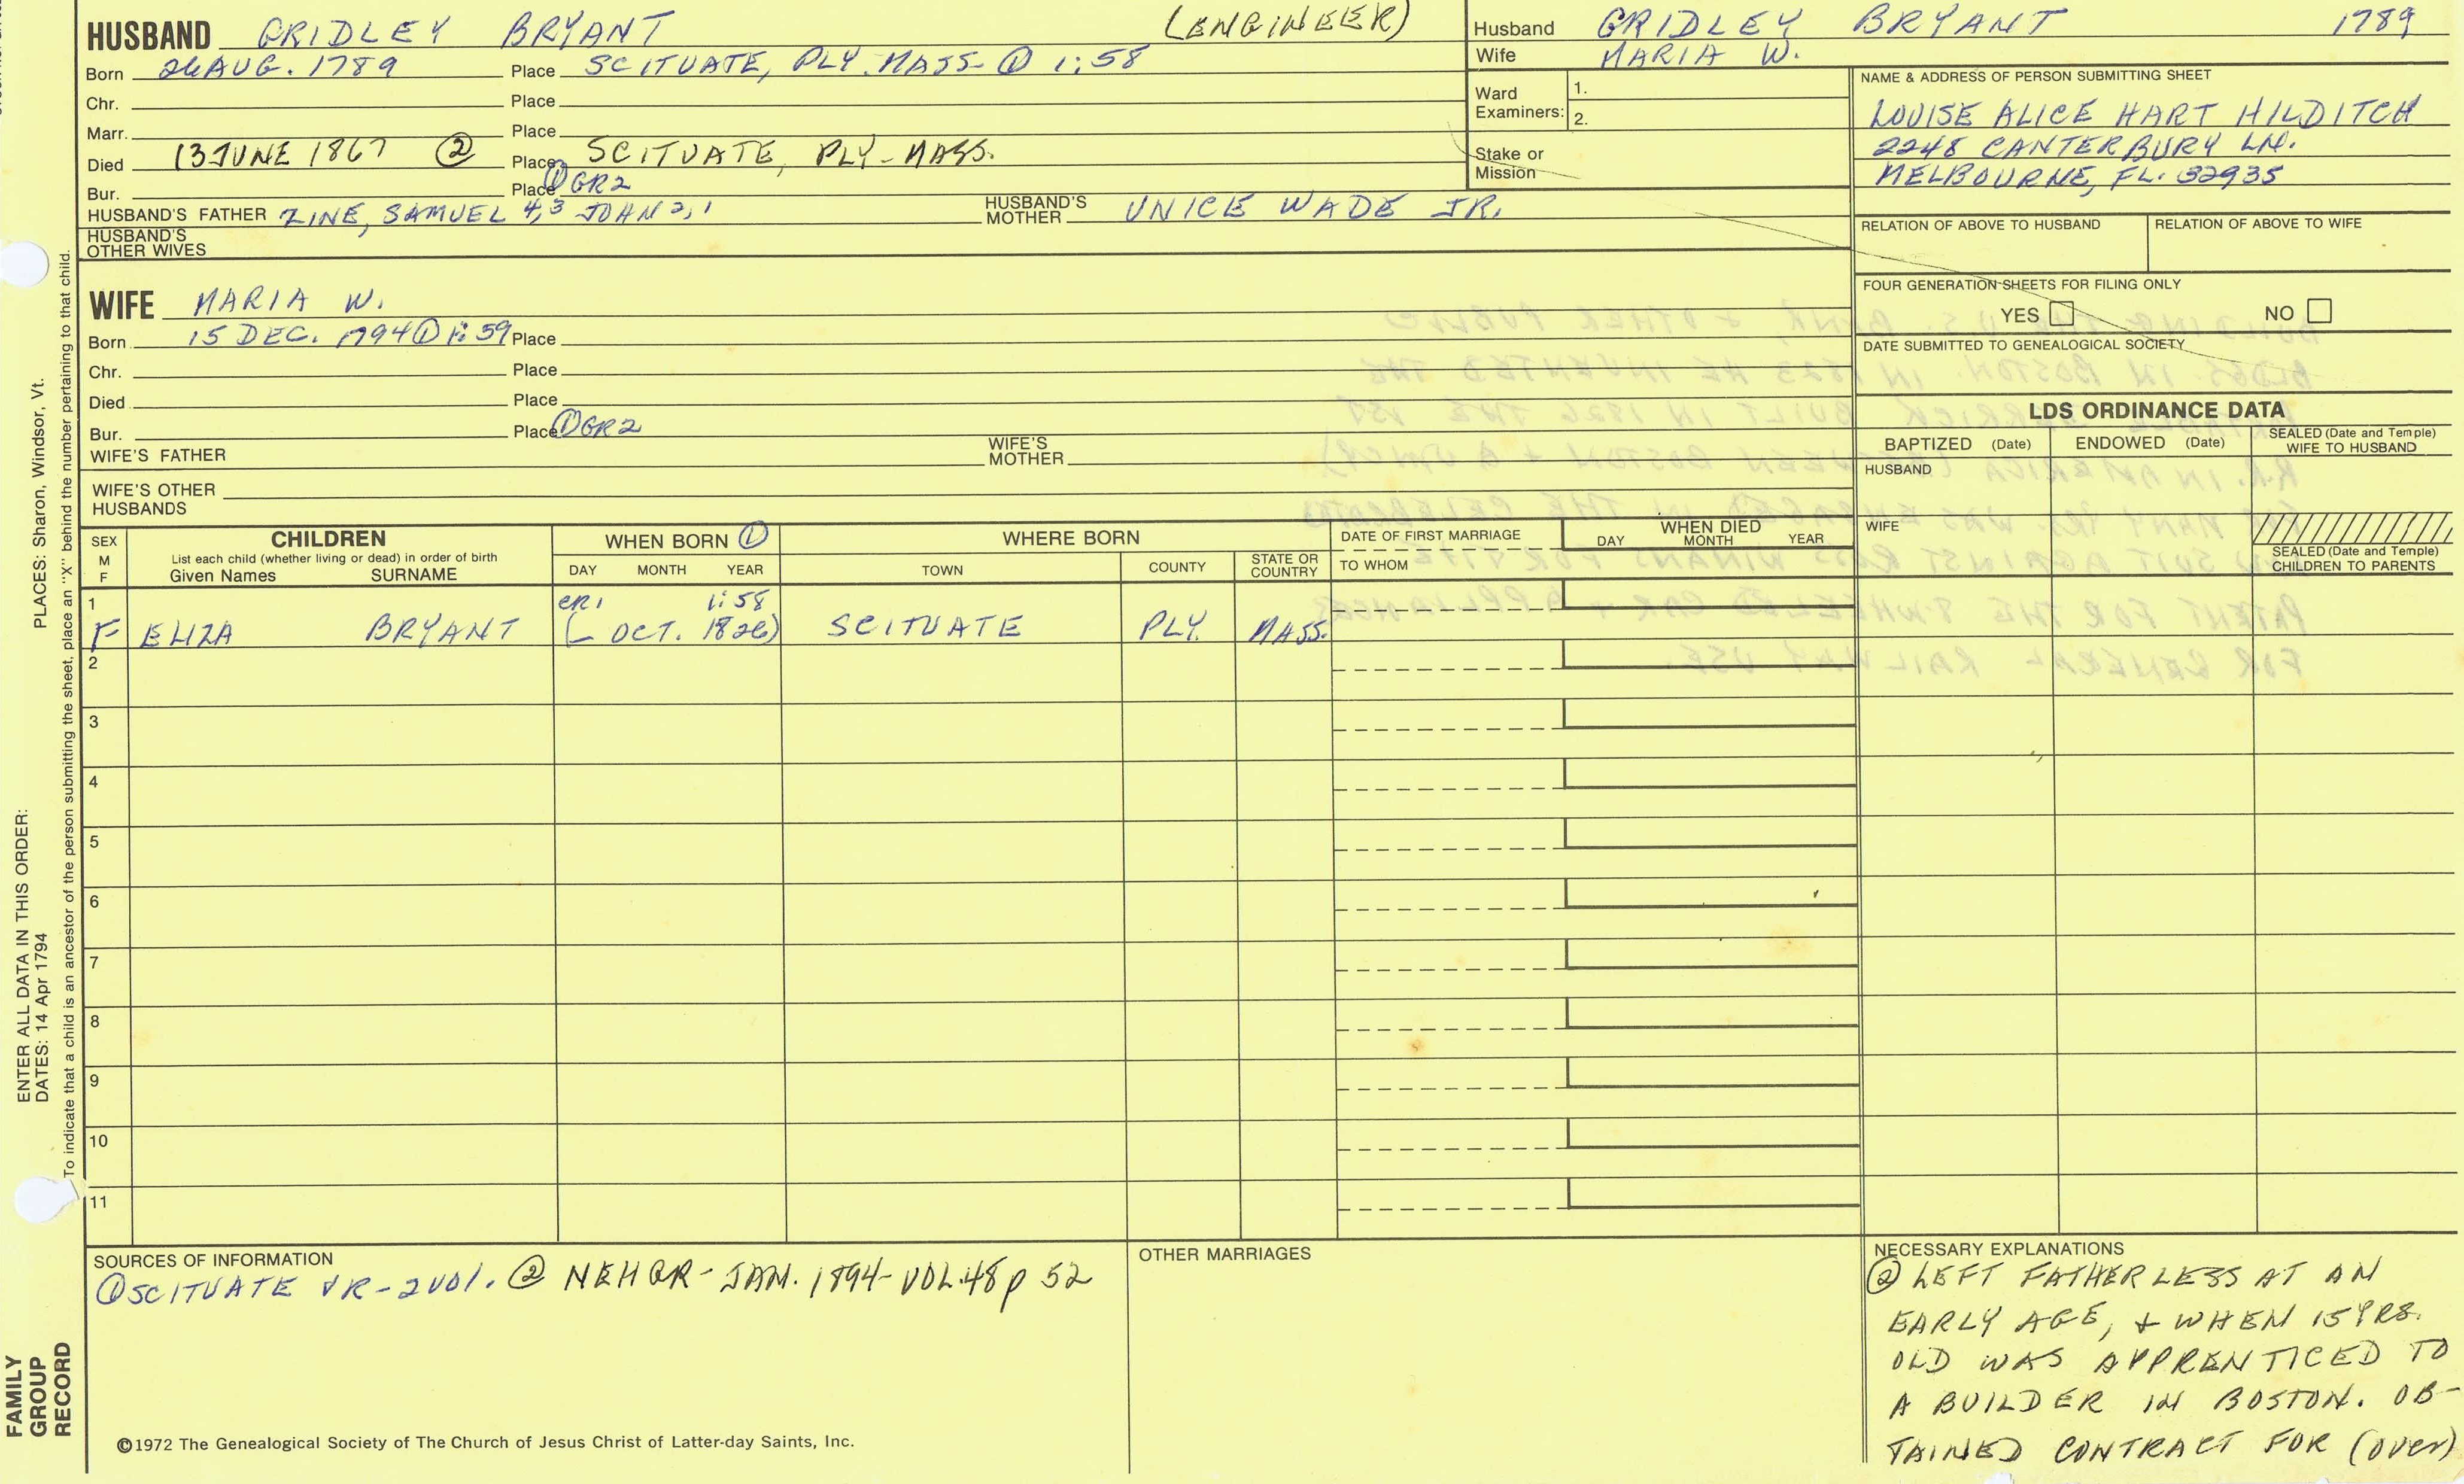 HUSBAND GRIDLEY BRYANT (ENGINEER)
Born 26 AUG. 1789 Place SCITUATE, PLY. MASS- ① 1:58
Chr. Place
Marr. Place
Died 13 JUNE 1867 ② Place SCITUATE, PLY-MASS.
Bur. Place ① GR2
HUSBAND'S FATHER ZINE, SAMUEL 4,3 JOHN 2,1 HUSBAND'S MOTHER UNICE WADE JR.
HUSBAND'S OTHER WIVES
Husband GRIDLEY BRYANT 1789
Wife MARIA W.
Ward Examiners: 1.
2.
Stake or Mission
NAME & ADDRESS OF PERSON SUBMITTING SHEET
LOUISE ALICE HART HILDITCH
2248 CANTERBURY LN.
MELBOURNE, FL. 32935
RELATION OF ABOVE TO HUSBAND RELATION OF ABOVE TO WIFE
FOUR GENERATION SHEETS FOR FILING ONLY
YES NO
DATE SUBMITTED TO GENEALOGICAL SOCIETY
WIFE MARIA W.
Born 15 DEC. 1794 ① 1:59 Place
Chr. Place
Died Place
Bur. Place ① GR2
WIFE'S FATHER WIFE'S MOTHER
WIFE'S OTHER HUSBANDS
LDS ORDINANCE DATA
BAPTIZED (Date) ENDOWED (Date) SEALED (Date and Temple) WIFE TO HUSBAND
HUSBAND
WIFE
SEALED (Date and Temple) CHILDREN TO PARENTS
SEX M F CHILDREN List each child (whether living or dead) in order of birth Given Names SURNAME
WHEN BORN ① DAY MONTH YEAR
WHERE BORN TOWN COUNTY STATE OR COUNTRY
DATE OF FIRST MARRIAGE TO WHOM
WHEN DIED DAY MONTH YEAR
1 CR1 1:58
F ELIZA BRYANT (- OCT. 1826) SCITUATE PLY. MASS.
2
3
4
5
6
7
8
9
10
11
SOURCES OF INFORMATION
① SCITUATE VR-2 VOL. ② NEHGR-JAN. 1894-VOL.48 p 52
OTHER MARRIAGES
NECESSARY EXPLANATIONS
② LEFT FATHERLESS AT AN
EARLY AGE, + WHEN 15 YRS.
OLD WAS APPRENTICED TO
A BUILDER IN BOSTON. OB-
TAINED CONTRACT FOR (over)
©1972 The Genealogical Society of The Church of Jesus Christ of Latter-day Saints, Inc.
ENTER ALL DATA IN THIS ORDER:
DATES: 14 Apr 1794 PLACES: Sharon, Windsor, Vt.
To indicate that a child is an ancestor of the person submitting the sheet, place an "X" behind the number pertaining to that child.
FAMILY
GROUP
RECORD
BUILDING THE U.S. BANK, + OTHER PUBLIC
BLDGS. IN BOSTON. IN 1823 HE INVENTED THE
PORTABLE DERRICK BUILT IN 1826 THE 1ST
R.R. IN AMERICA (BETWEEN BOSTON + QUINCY)
FOR MANY YRS. WAS ENGAGED IN THE CELEBRATED
LAW SUIT AGAINST ROSS WINANS FOR THE
PATENT FOR THE 8 WHEELED CAR + APPLIANCES
FOR GENERAL RAILWAY USE.